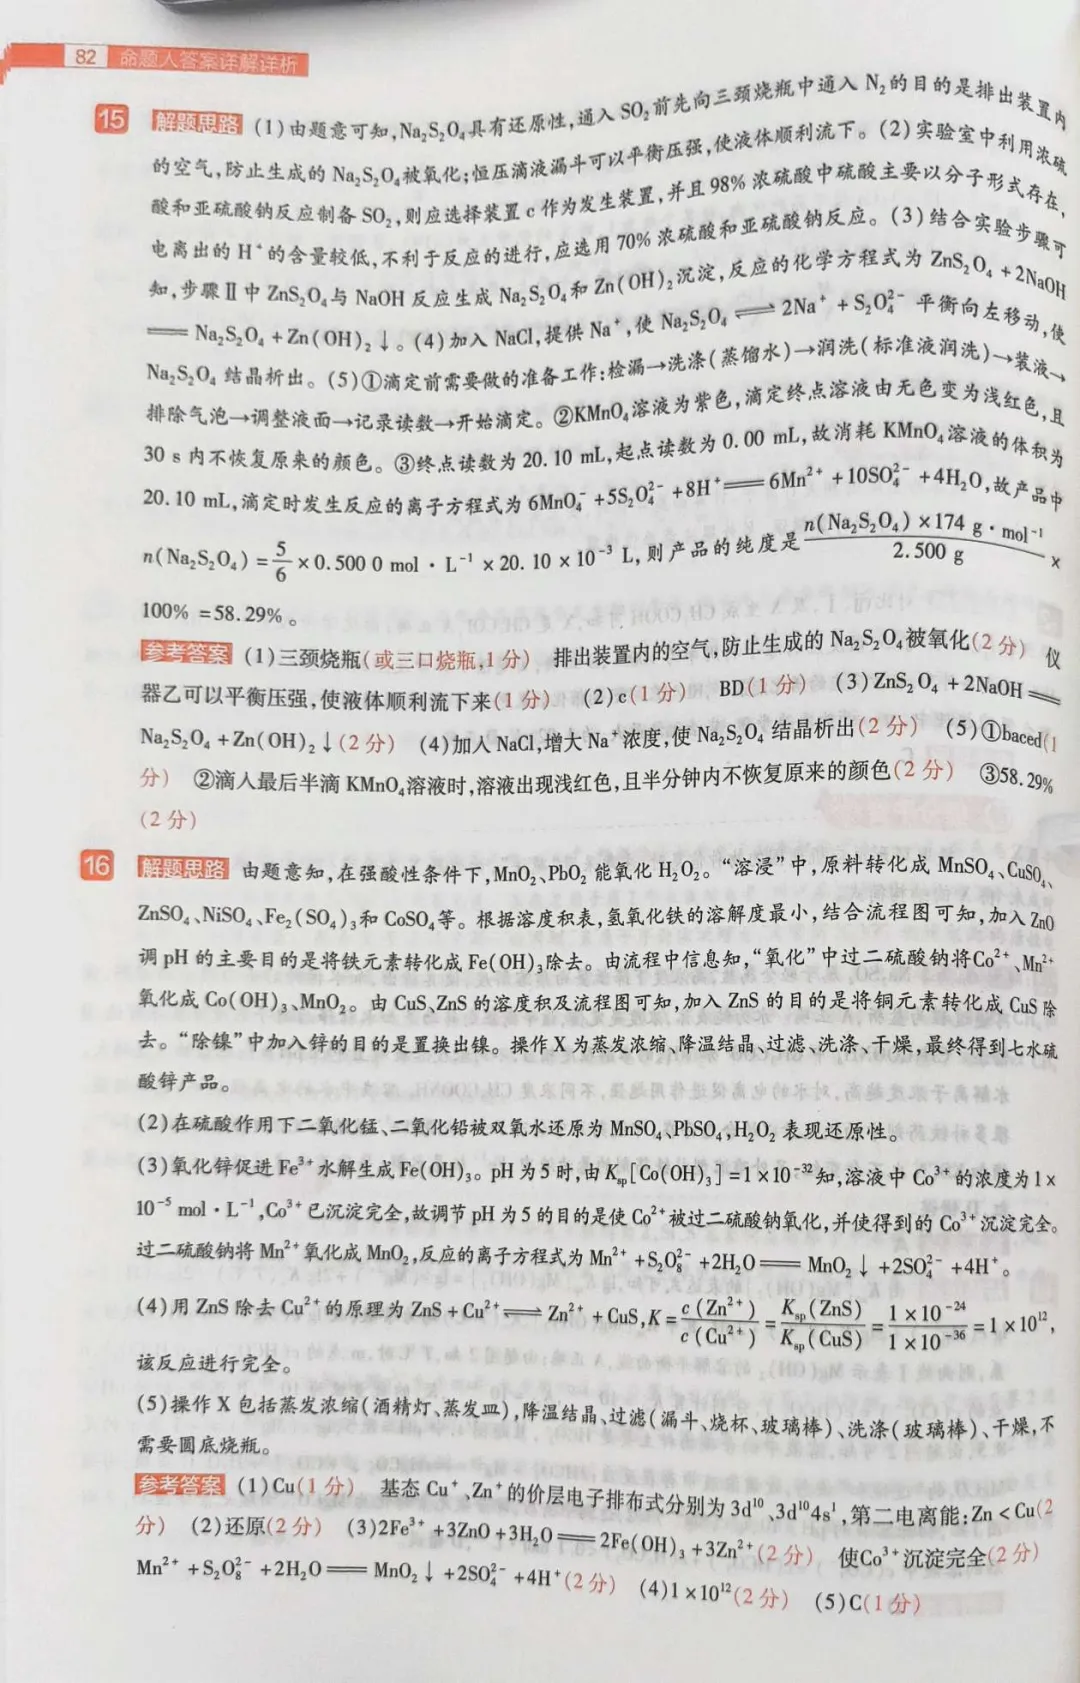 82 命题人答案详解详析
15 解题思路 (1)由题意可知,Na₂S₂O₄具有还原性,通入 SO₂前先向三颈烧瓶中通入 N₂的目的是排出装置内
的空气,防止生成的 Na₂S₂O₄被氧化;恒压滴液漏斗可以平衡压强,使液体顺利流下。(2)实验室中利用浓硫
酸和亚硫酸钠反应制备 SO₂,则应选择装置 c 作为发生装置,并且98% 浓硫酸中硫酸主要以分子形式存在,
电离出的 H⁺的含量较低,不利于反应的进行,应选用70% 浓硫酸和亚硫酸钠反应。(3)结合实验步骤可
知,步骤Ⅱ中 ZnS₂O₄与 NaOH 反应生成 Na₂S₂O₄和 Zn(OH)₂沉淀,反应的化学方程式为 ZnS₂O₄ +2NaOH
══Na₂S₂O₄ +Zn(OH)₂↓。(4)加入 NaCl,提供 Na⁺,使 Na₂S₂O₄⇌2Na⁺ +S₂O₄²⁻ 平衡向左移动,使
Na₂S₂O₄ 结晶析出。(5)①滴定前需要做的准备工作:检漏→洗涤(蒸馏水)→润洗(标准液润洗)→装液→
排除气泡→调整液面→记录读数→开始滴定。②KMnO₄溶液为紫色,滴定终点溶液由无色变为浅红色,且
30 s 内不恢复原来的颜色。③终点读数为 20.10 mL,起点读数为 0.00 mL,故消耗 KMnO₄溶液的体积为
20.10 mL,滴定时发生反应的离子方程式为 6MnO₄⁻ +5S₂O₄²⁻ +8H⁺══6Mn²⁺ +10SO₄²⁻ +4H₂O,故产品中
n(Na₂S₂O₄) =5/6×0.500 0 mol·L⁻¹ ×20.10×10⁻³ L,则产品的纯度是n(Na₂S₂O₄)×174 g·mol⁻¹/2.500 g×
100% =58.29%。
参考答案 (1)三颈烧瓶(或三口烧瓶,1分) 排出装置内的空气,防止生成的 Na₂S₂O₄被氧化(2分) 仪
器乙可以平衡压强,使液体顺利流下来(1分) (2)c(1分) BD(1分) (3)ZnS₂O₄ +2NaOH══
Na₂S₂O₄ +Zn(OH)₂↓(2分) (4)加入 NaCl,增大 Na⁺浓度,使 Na₂S₂O₄ 结晶析出(2分) (5)①baced(1
分) ②滴入最后半滴 KMnO₄溶液时,溶液出现浅红色,且半分钟内不恢复原来的颜色(2分) ③58.29%
(2分)
16 解题思路 由题意知,在强酸性条件下,MnO₂、PbO₂ 能氧化 H₂O₂。“溶浸”中,原料转化成 MnSO₄、CuSO₄、
ZnSO₄、NiSO₄、Fe₂(SO₄)₃和 CoSO₄等。根据溶度积表,氢氧化铁的溶解度最小,结合流程图可知,加入 ZnO
调 pH 的主要目的是将铁元素转化成 Fe(OH)₃除去。由流程中信息知,“氧化”中过二硫酸钠将Co²⁺、Mn²⁺
氧化成 Co(OH)₃、MnO₂。由 CuS、ZnS 的溶度积及流程图可知,加入 ZnS 的目的是将铜元素转化成 CuS 除
去。“除镍”中加入锌的目的是置换出镍。操作 X 为蒸发浓缩、降温结晶、过滤、洗涤、干燥,最终得到七水硫
酸锌产品。
(2)在硫酸作用下二氧化锰、二氧化铅被双氧水还原为 MnSO₄、PbSO₄,H₂O₂ 表现还原性。
(3)氧化锌促进 Fe³⁺水解生成 Fe(OH)₃。pH为5时,由 Kₛₚ[Co(OH)₃]=1×10⁻³²知,溶液中 Co³⁺的浓度为1×
10⁻⁵ mol·L⁻¹,Co³⁺已沉淀完全,故调节 pH 为5的目的是使 Co²⁺被过二硫酸钠氧化,并使得到的 Co³⁺沉淀完全。
过二硫酸钠将 Mn²⁺氧化成 MnO₂,反应的离子方程式为 Mn²⁺ +S₂O₈²⁻ +2H₂O══MnO₂↓+2SO₄²⁻ +4H⁺。
(4)用 ZnS 除去 Cu²⁺的原理为 ZnS+Cu²⁺⇌Zn²⁺ +CuS,K=c(Zn²⁺)/c(Cu²⁺)=Kₛₚ(ZnS)/Kₛₚ(CuS)=1×10⁻²⁴/1×10⁻³⁶=1×10¹²,
该反应进行完全。
(5)操作 X 包括蒸发浓缩(酒精灯、蒸发皿),降温结晶、过滤(漏斗、烧杯、玻璃棒)、洗涤(玻璃棒)、干燥,不
需要圆底烧瓶。
参考答案 (1)Cu(1分) 基态 Cu⁺、Zn⁺的价层电子排布式分别为 3d¹⁰、3d¹⁰4s¹,第二电离能:Zn<Cu(2
分) (2)还原(2分) (3)2Fe³⁺ +3ZnO+3H₂O══2Fe(OH)₃+3Zn²⁺(2分) 使Co³⁺沉淀完全(2分)
Mn²⁺ +S₂O₈²⁻ +2H₂O══MnO₂↓+2SO₄²⁻ +4H⁺(2分) (4)1×10¹²(2分) (5)C(1分)